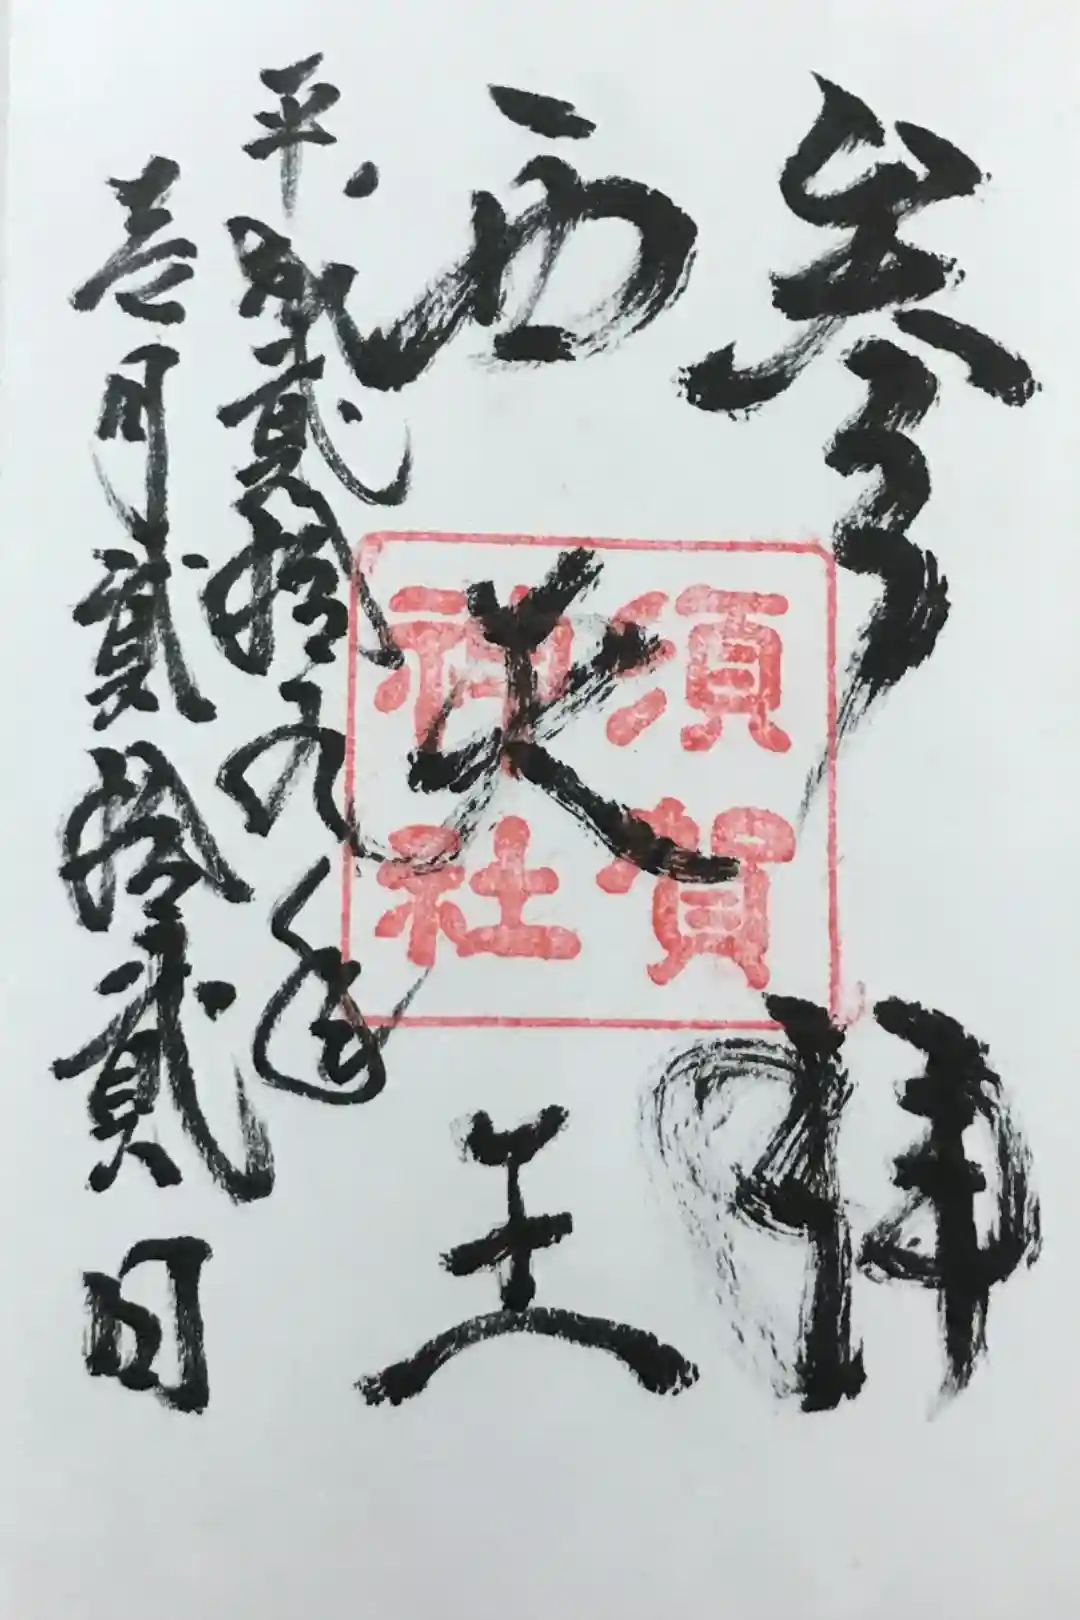 参拝
西天王
平成貳拾九年
壱月貳拾貳日
須賀
神社